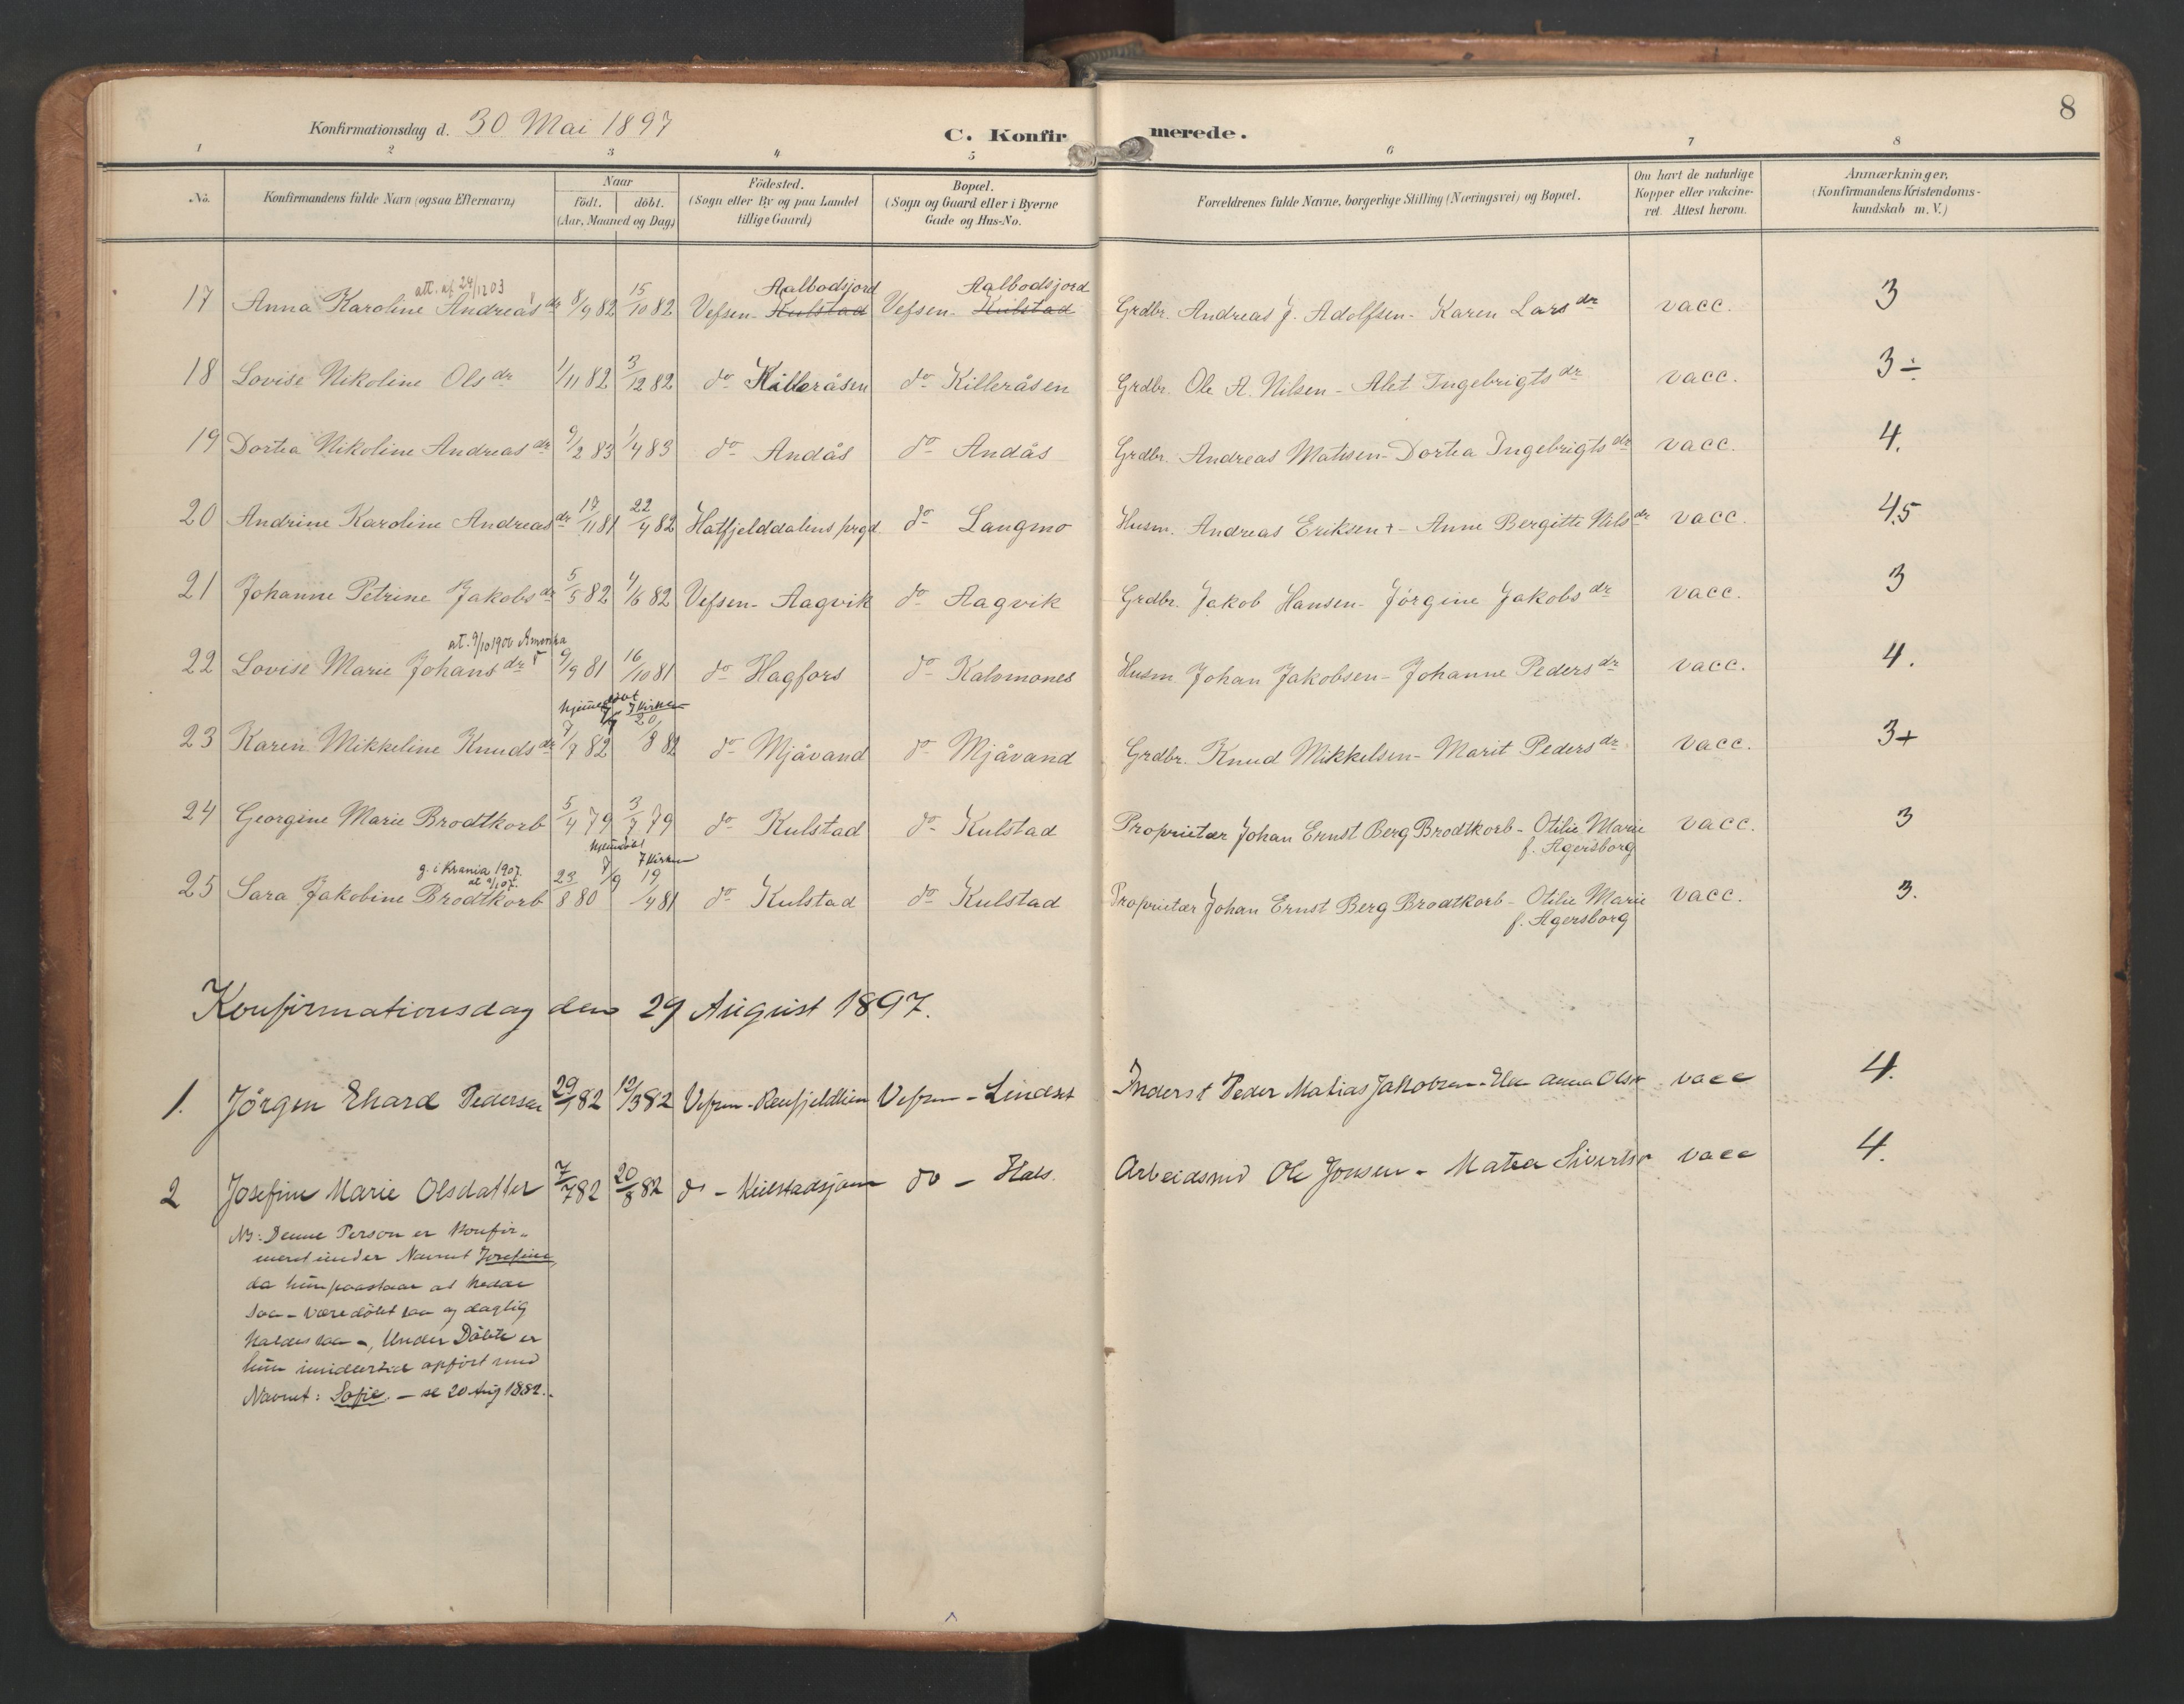 8
Konfirmationsdag d. 30 Mai 1897 C. Konfirmerede.
1 2 3 4 5 6 7 8
No. Konfirmandens fulde Navn (ogsaa Efternavn) Naar födt. döbt. (Aar, Maaned og Dag) Födested. (Sogn eller By og paa Landet tillige Gaard) Bopæl. (Sogn og Gaard eller i Byerne Gade og Hus-No. Forældrenes fulde Navne, borgerlige Stilling (Næringsvei) og Bopæl. Om havt de naturlige Kopper eller vakcineret. Attest herom. Anmærkninger, (Konfirmandens Kristendomskundskab m. V.)
att. af 24/12 03 Aalbodsjord Aalbodsjord
17 Anna Karoline Andreasdr 8/9 82 15/10 82 Vefsen- Kulstad Vefsen- Kulstad Grdbr. Andreas J. Adolfsen- Karen Larsdr vacc. 3
18 Lovise Nikoline Olsdr 1/11 82 3/12 82 do Killeråsen do Killeråsen Grdbr. Ole A. Nilsen- Alet Ingebrigtsdr vacc. 3÷
19 Dortea Nikoline Andreasdr 9/2 83 1/4 83 do Andås do Andås Grdbr. Andreas Matisen- Dortea Ingebrigtsdr vacc. 4.
20 Andrine Karoline Andreasdr 17/11 81 22/4 82 Hatfjelddalens prgd do Langmo Husm. Andreas Eriksen+- Anne Bergitte Nilsdr vacc. 4.5
21 Johanne Petrine Jakobsdr 5/5 82 4/6 82 Vefsen- Aagvik do Aagvik Grdbr. Jakob Hansen- Jörgine Jakobsdr vacc. 3
at. 9/10 1900 Amerika
22 Lovise Marie Johansdr 9/9 81 16/10 81 do Hagfors do Kalvmones Husm Johan Jakobsen- Johanne Pedersdr vacc. 4.
hjemmedöbt I Kirken
23 Karen Mikkeline Knudsdr 7/7 82 20/8 82 do Mjåvand do Mjåvand Grdbr. Knud Mikkelsen- Marit Pedersdr vacc. 3+
24 Georgine Marie Brodtkorb 5/4 79 3/7 79 do Kulstad do Kulstad Proprietær Johan Ernst Berg Brodtkorb- Otilie Marie f. Agersborg vacc. 3
g. i Krania 1907. hjemdöbt 7/9 I Kirken
25 Sara Jakobine Brodtkorb 23/8 80 19/4 81 do Kulstad do Kulstad Proprietær Johan Ernst Berg Brodtkorb- Otilie Marie f. Agersborg vacc. 3.
Konfirmationsdag den 29 August 1897.
1. Jörgen Ehard Pedersen 29/1 82 12/3 82 Vefsen- Renfjeldlien Vefsen- Lindset Inderst Peder Matias Jakobsen- Anna Olsdr vacc 4.
2 Josefine Marie Olsdatter 7/7 82 20/8 82 do - Kulstadsjöen do - Hals. Arbeidsmd Ole Jonsen- Matea Sivertsdr vacc 4.
NB: Denne Person er Konfir-
meret under Navnet Josefine,
da hun paastaar at hedde
saa - være döbt saa og daglig
kaldes saa -, Under Döbte er
hun imidlertid opfört med
Navnet: Sofie. - se 20 Aug 1882.